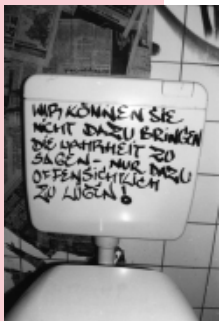 WIR KÖNNEN SIE
NICHT DAZU BRINGEN
DIE WAHRHEIT ZU
SAGEN - NUR DAZU
OFFENSICHTLICH
ZU LÜGEN!